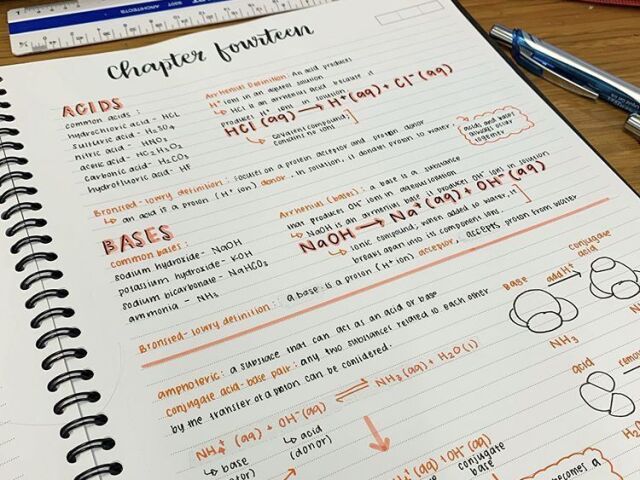 ARCHITECTS
Chapter fourteen
ACIDS
common acids:
hydrochloric acid - HCL
sulfuric acid - H₂SO4
nitric acid - HNO₃
acetic acid - HC₂H₃O₂
carbonic acid - H₂CO₃
hydrofluoric acid - HF
Arrhenius Definition: An acid produces
H⁺ ions in an aqueous solution
↳ HCl is an arrhenius acid because it
produces H⁺ ions in solution
HCl (aq) → H⁺(aq) + Cl⁻(aq)
↳ covalent compound;
contains no ions
acids and bases
always occur
together
Bronsted-lowry definition: focuses on a proton acceptor and proton donor
↳ an acid is a proton (H⁺ ion) donor. in solution, it donates proton to water.
BASES
common bases:
sodium hydroxide - NaOH
potassium hydroxide - KOH
sodium bicarbonate - NaHCO₃
ammonia - NH₃
Arrhenius (bases): a base is a substance
that produces OH⁻ ions in aqueous solution
↳ NaOH is an arrhenius base it produces OH⁻ ions in solution
NaOH → Na⁺(aq) + OH⁻(aq)
↳ ionic compound; when added to water, it
breaks apart into its component ions.
Bronsted-lowry definition: a base is a proton (H⁺ ion) acceptor, accepts proton from water
amphoteric: a substance that can act as an acid or base
conjugate acid-base pair: any two substances related to each other
by the transfer of a proton can be considered.
NH₄⁺ (aq) + OH⁻(aq) ⇌ NH₃(aq) + H₂O(l)
↳ base
↳ acid
(donor)
OH⁻(aq)
conjugate
base
Base
add H⁺
conjugate
acid
NH₃
acid
becomes a